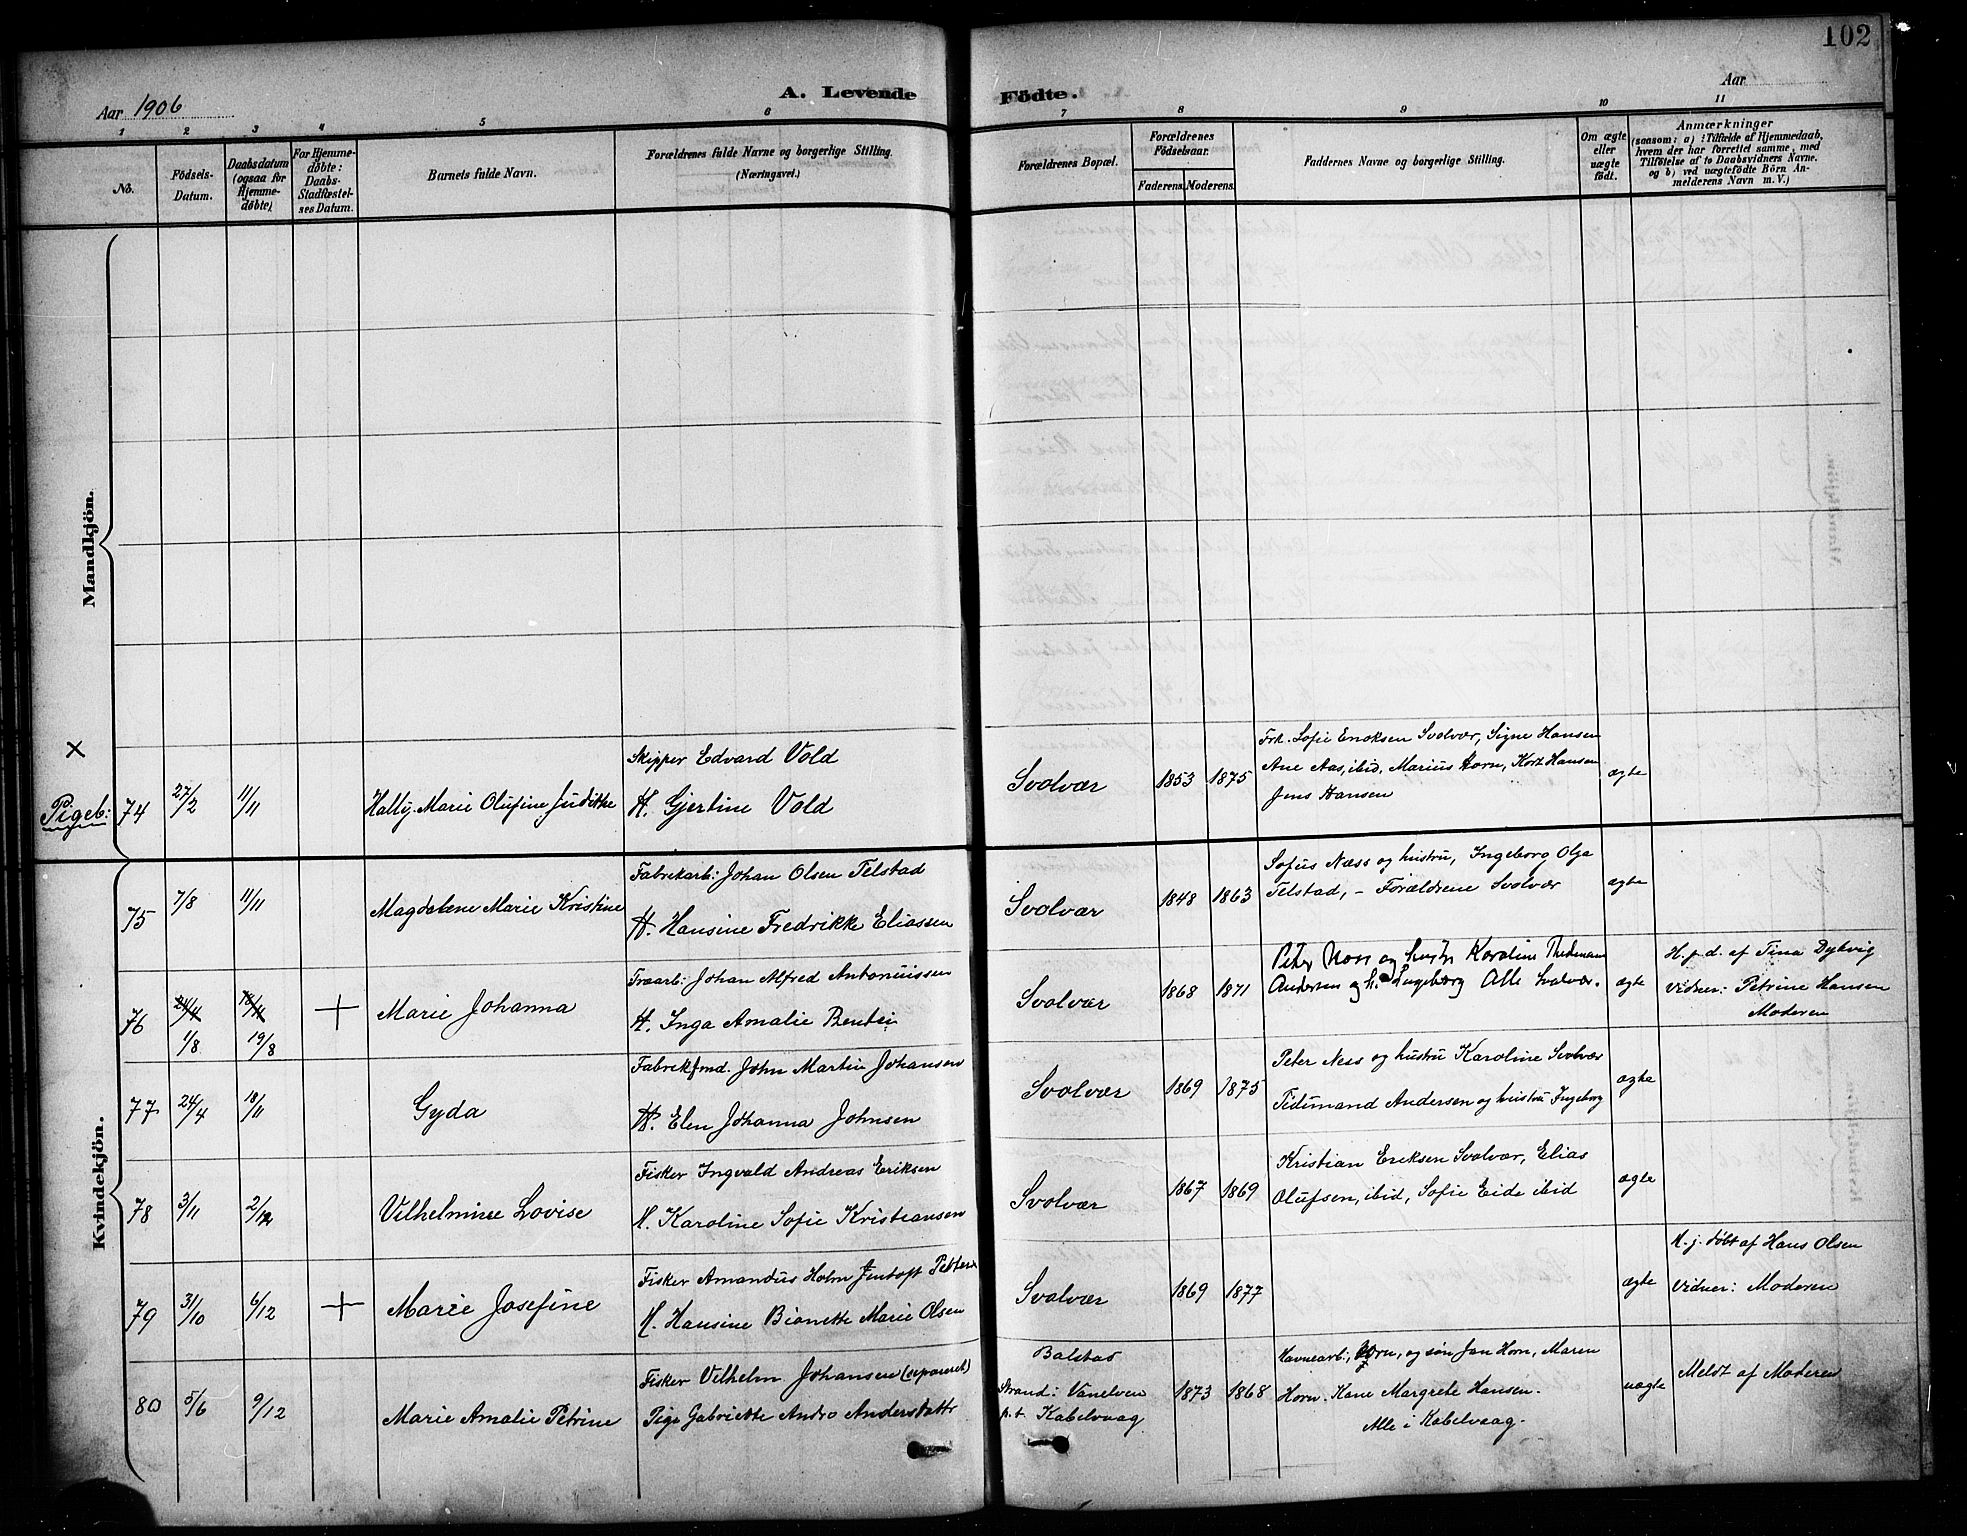 102
Aar 1906
A. Levende
Födte.
Aar
1 2 3 4 5 6 7 8 9 10 11
No.
Födsels-
Datum.
Daabsdatum
(ogsaa for
Hjemme-
døbte).
For Hjemme-
døbte:
Daabs-
Stadfæstel-
ses Datum.
Barnets fulde Navn.
Forældrenes fulde Navne og borgerlige Stilling.
(Næringsvei.)
Forældrenes Bopæl.
Forældrenes
Fødselsaar.
Faderens. Moderens.
Faddernes Navne og borgerlige Stilling.
Om ægte
eller
uægte
født.
Anmærkninger
(saasom: a) Tilfælde af Hjemmedaab,
hvem der har forrettet samme, med
Tilføielse af to Daabsvidners Navne.
og b) ved uægtefødte Börn An-
melderens Navn m. V.)
Mandkjön.
Kvindekjön.
×
Pigeb:
74
27/2
11/11
Hally Marie Olufine Judithe
Skipper Edvard Vold
H. Gjertine Vold
Svolvær
1853
1875
Frk. Sofie Enoksen Svolvær, Signe Hansen
Ane Aas, ibid, Marius Horn, Kort Hansen
Jens Hansen
ægte
75
7/8
11/11
Magdalene Marie Kristine
Fabrikarb: Johan Olsen Telstad
H. Hansine Fredrikke Eliassen
Svolvær
1848
1863
Sofus Næss og hustru, Ingeborg Olga
Telstad, - Forældrene Svolvær
ægte
76
24/4
1/8
18/11
19/8
+
Marie Johanna
Johan Alfred Antoniussen
H. Inga Amalie
Svolvær
1868
1871
Peter Næss og hustr Karoline
Andersen og h. Ingeborg Alle Svolvær.
ægte
H. j. d. af Tina Dybvig
Vidner: Petrine Hansen
Moderen
77
24/4
18/11
Gyda
Fabrikfmd. John Martin Johansen
H. Elen Johanna Johnsen
Svolvær
1869
1875
Peter Ness og hustru Karoline Svolvær
Tidemand Andersen og hustru Ingeborg
ægte
78
3/11
2/12
Vilhelmine Lovise
Fisker Ingvald Andreas Eriksen
H. Karoline Sofie Kristiansen
Svolvær
1867
1869
Kristian Eriksen Svolvær, Elias
Olufsen, ibid, Sofie Eide ibid
ægte
79
31/10
6/12
+
Marie Josefine
Fisker Amandus Holm Jentoft
H. Hansine Bianette Marie Olsen
Svolvær
1869
1877
ægte
H. j. døbt af Hans Olsen
Vidner: Moderen
80
5/6
9/12
Marie Amalie Petrine
Fisker Vilhelm Johansen (separeret)
Pige Gabriette Andro Andersdattr
Balstad
Strand: Vanelven
p.t. Kabelvaag
1873
1868
Havnearb:, Horn, og søn Jan Horn, Maren
Horn. Kane Margrete Hansen.
Alle i Kabelvaag.
uægte
Meldt af Moderen